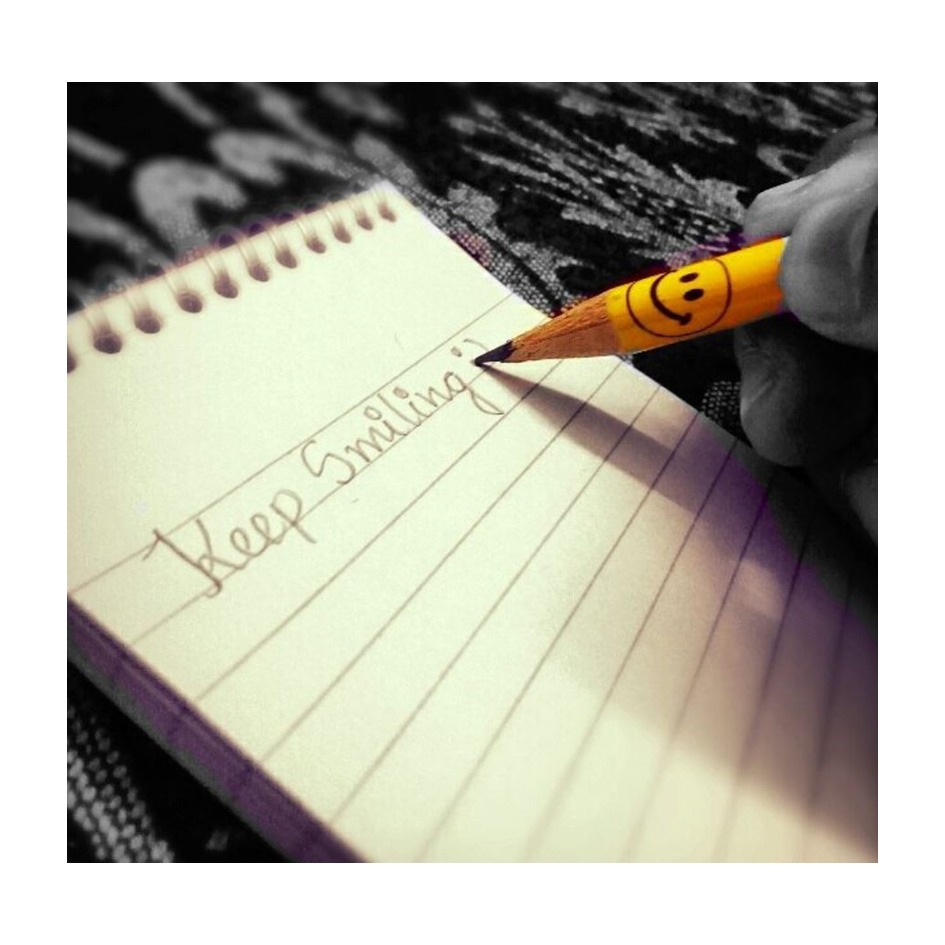 Keep Smiling :)